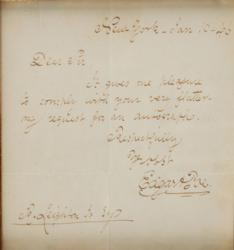 New York - Jan 10 - 46
Dear Sir,
It gives me pleasure
to comply with your very flatter-
ing request for an autograph.
Respectfully
Yr ob St
Edgar A Poe.
R. Leighton Jr Esqr